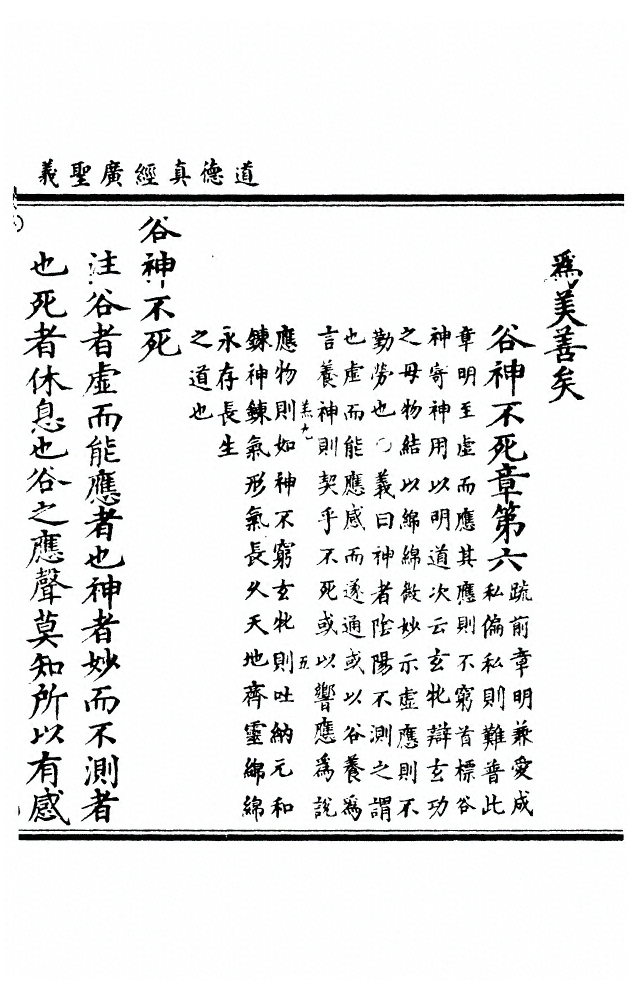 道德真經廣聖義
爲美善矣
谷神不死章第六
疏前章明兼愛成
私偏私則難普此
章明至虛而應其應則不窮首標谷
神寄神用以明道次云玄牝辯玄功
之母物結以綿綿微妙示虛應則不
勤勞也○義曰神者陰陽不測之謂
也虛而能應感而遂通或以谷養爲
言養神則契乎不死或以響應爲說
羔九
五
應物則如神不窮玄牝則吐納元和
鍊神鍊氣形氣長久天地齊靈綿綿
永存長生
之道也
谷神不死
注谷者虛而能應者也神者妙而不測者
也死者休息也谷之應聲莫知所以有感